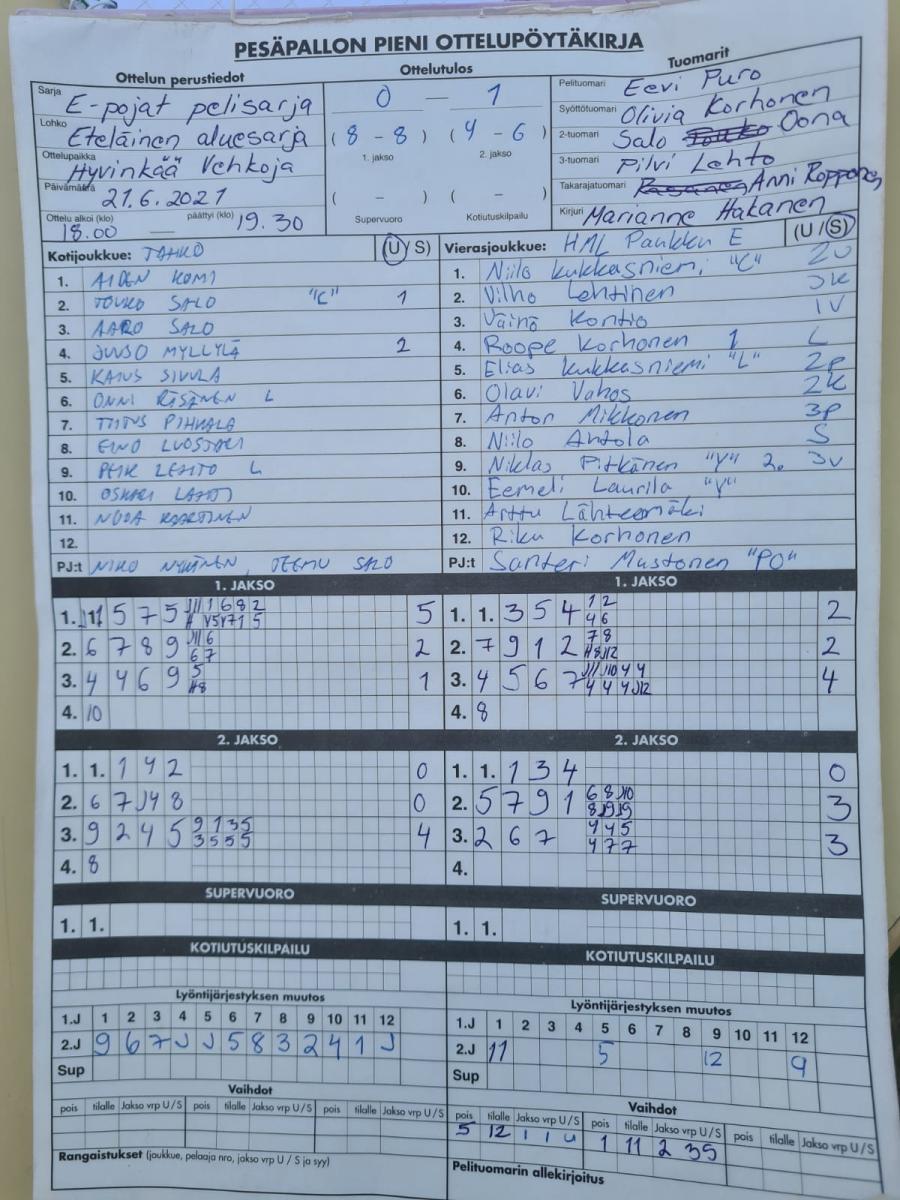 PESÄPALLON PIENI OTTELUPÖYTÄKIRJA
Ottelun perustiedot
Sarja E-pojat pelisarja
Lohko Eteläinen aluesarja
Ottelupaikka Hyvinkää Vehkoja
Päivämäärä 21.6.2021
Ottelu alkoi (klo) 18.00 päättyi (klo) 19.30
Ottelutulos
0 — 1
(8 - 8) (4 - 6)
1. jakso 2. jakso
( - ) ( - )
Supervuoro Kotiutuskilpailu
Tuomarit
Pelituomari Eevi Puro
Syöttötuomari Olivia Korhonen
2-tuomari Salo Oona
3-tuomari Pilvi Lehto
Takarajatuomari Anni Ropponen
Kirjuri Marianne Hakanen
Kotijoukkue: TAHKO (U / S)
1. AIDEN KOMI
2. TOUKO SALO "C" 1
3. AARO SALO
4. JUUSO MYLLYLÄ 2
5. KAIUS SIVULA
6. ONNI RÄSÄNEN L
7. TIITUS PIHKALA
8. EINO LUOSTARI
9. PEIK LEHTO L
10. OSKARI LAHTI
11. NOOA KAARTINEN
12.
PJ:t NIKO NYKÄNEN, TEEMU SALO
Vierasjoukkue: HML Pankku E (U / S)
1. Niilo Kukkasniemi "C" 2v
2. Vilho Lehtinen 3K
3. Väinö Kontio 1V
4. Roope Korhonen 1 L
5. Elias Kukkasniemi "L" 2P
6. Olavi Vahos 2K
7. Anton Mikkonen 3P
8. Niilo Antola S
9. Niklas Pitkänen "Y" 2. 3v
10. Eemeli Laurila "Y"
11. Arttu Lähteenmäki
12. Riku Korhonen
PJ:t Santeri Mustonen "PO"
1. JAKSO
1. 1 5 7 5 5
2. 6 7 8 9 2
3. 4 4 6 9 1
4. 10
1. JAKSO
1. 1. 3 5 4 2
2. 7 9 1 2 2
3. 4 5 6 7 4
4. 8
2. JAKSO
1. 1. 1 4 2 0
2. 6 7 J4 8 0
3. 9 2 4 5 9 1 3 5 4
3 5 5 5
4. 8
2. JAKSO
1. 1. 1 3 4 0
2. 5 7 9 1 6 8 J10 3
8 J9 J9
3. 2 6 7 4 4 5 3
4 7 7
4.
SUPERVUORO
1. 1.
SUPERVUORO
1. 1.
KOTIUTUSKILPAILU
KOTIUTUSKILPAILU
Lyöntijärjestyksen muutos
1.J 1 2 3 4 5 6 7 8 9 10 11 12
2.J 9 6 7 J J 5 8 3 2 4 1 J
Sup
Lyöntijärjestyksen muutos
1.J 1 2 3 4 5 6 7 8 9 10 11 12
2.J 11 5 12 9
Sup
Vaihdot
pois tilalle Jakso vrp U / S pois tilalle Jakso vrp U / S pois tilalle Jakso vrp U / S
Rangaistukset (joukkue, pelaaja nro, jakso vrp U / S ja syy)
Vaihdot
pois tilalle Jakso vrp U / S pois tilalle Jakso vrp U / S pois tilalle Jakso vrp U / S
5 12 1 1 U 1 11 2 3S
Pelituomarin allekirjoitus